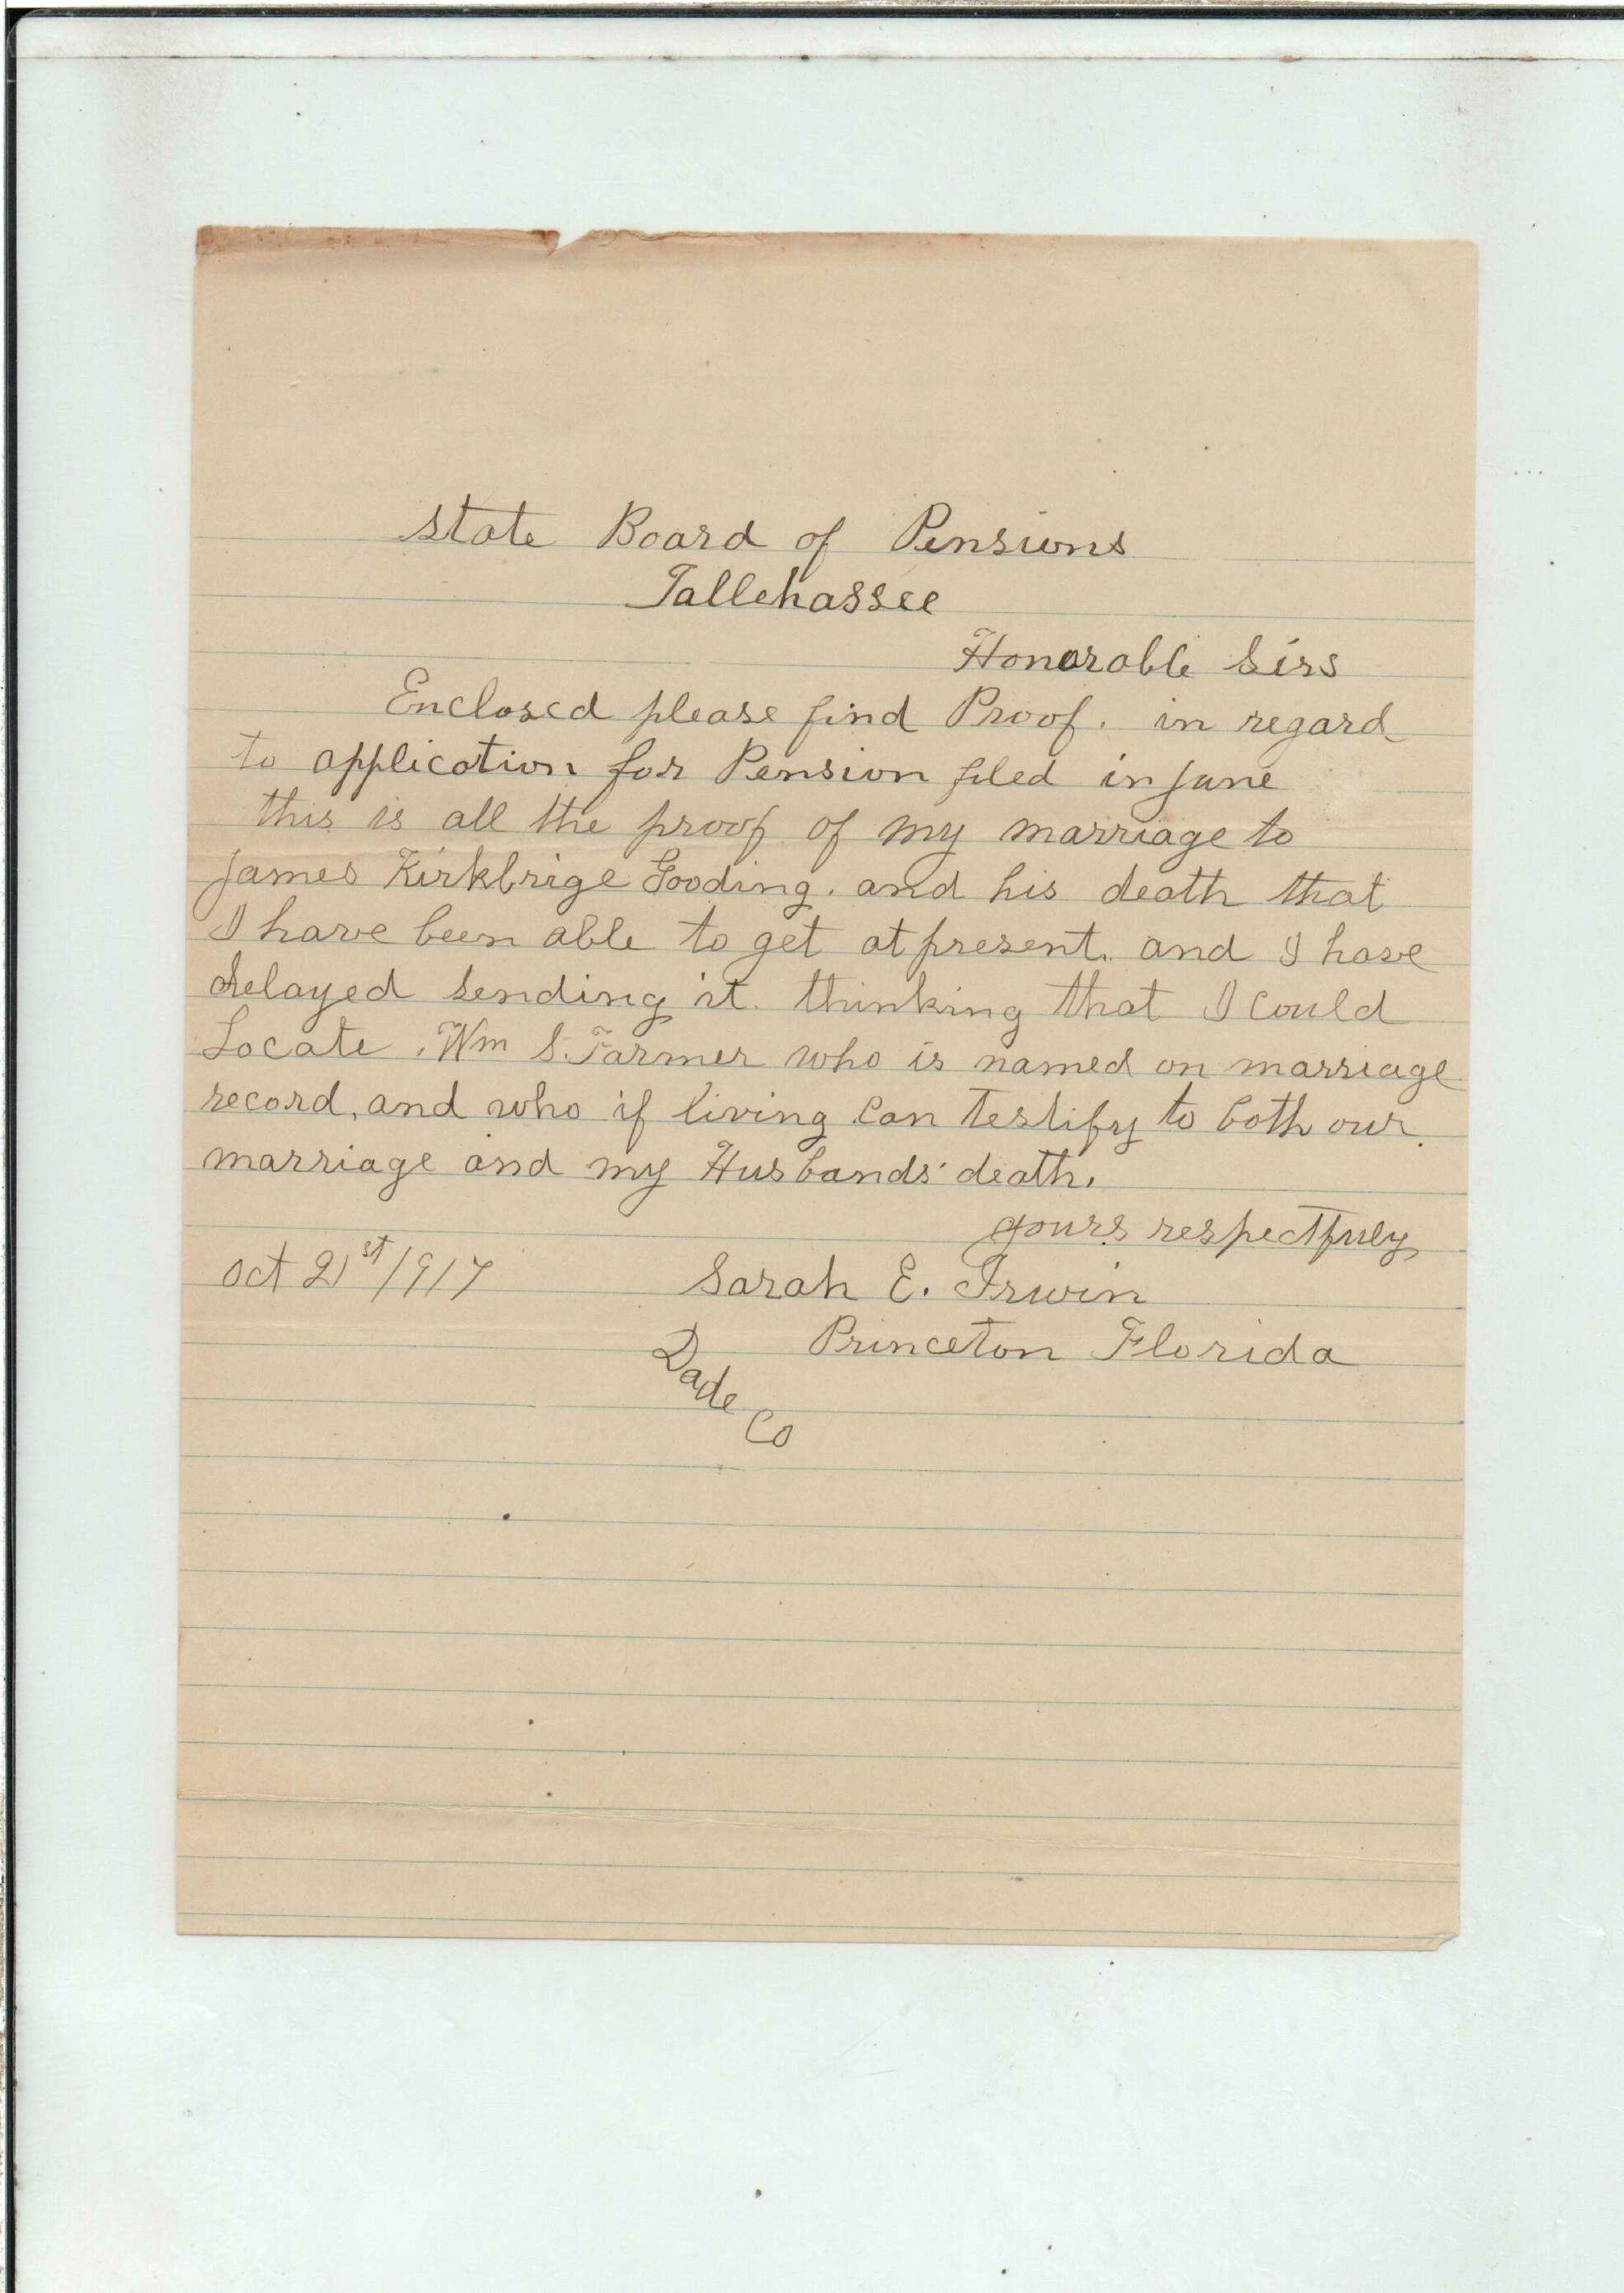 State Board of Pensions
Tallehassee
Honorable Sirs
Enclosed please find Proof. in regard
to application for Pension filed in June
this is all the proof of my marriage to
James Kirkbrige Gooding. and his death that
I have been able to get at present. and I have
delayed sending it. thinking that I could
Locate. Wm S. Farmer who is named on marriage
record, and who if living can testify to both our
marriage and my Husbands' death.
yours respectfuly
Oct 21st/1917 Sarah E. Irwin
Princeton Florida
Dade Co